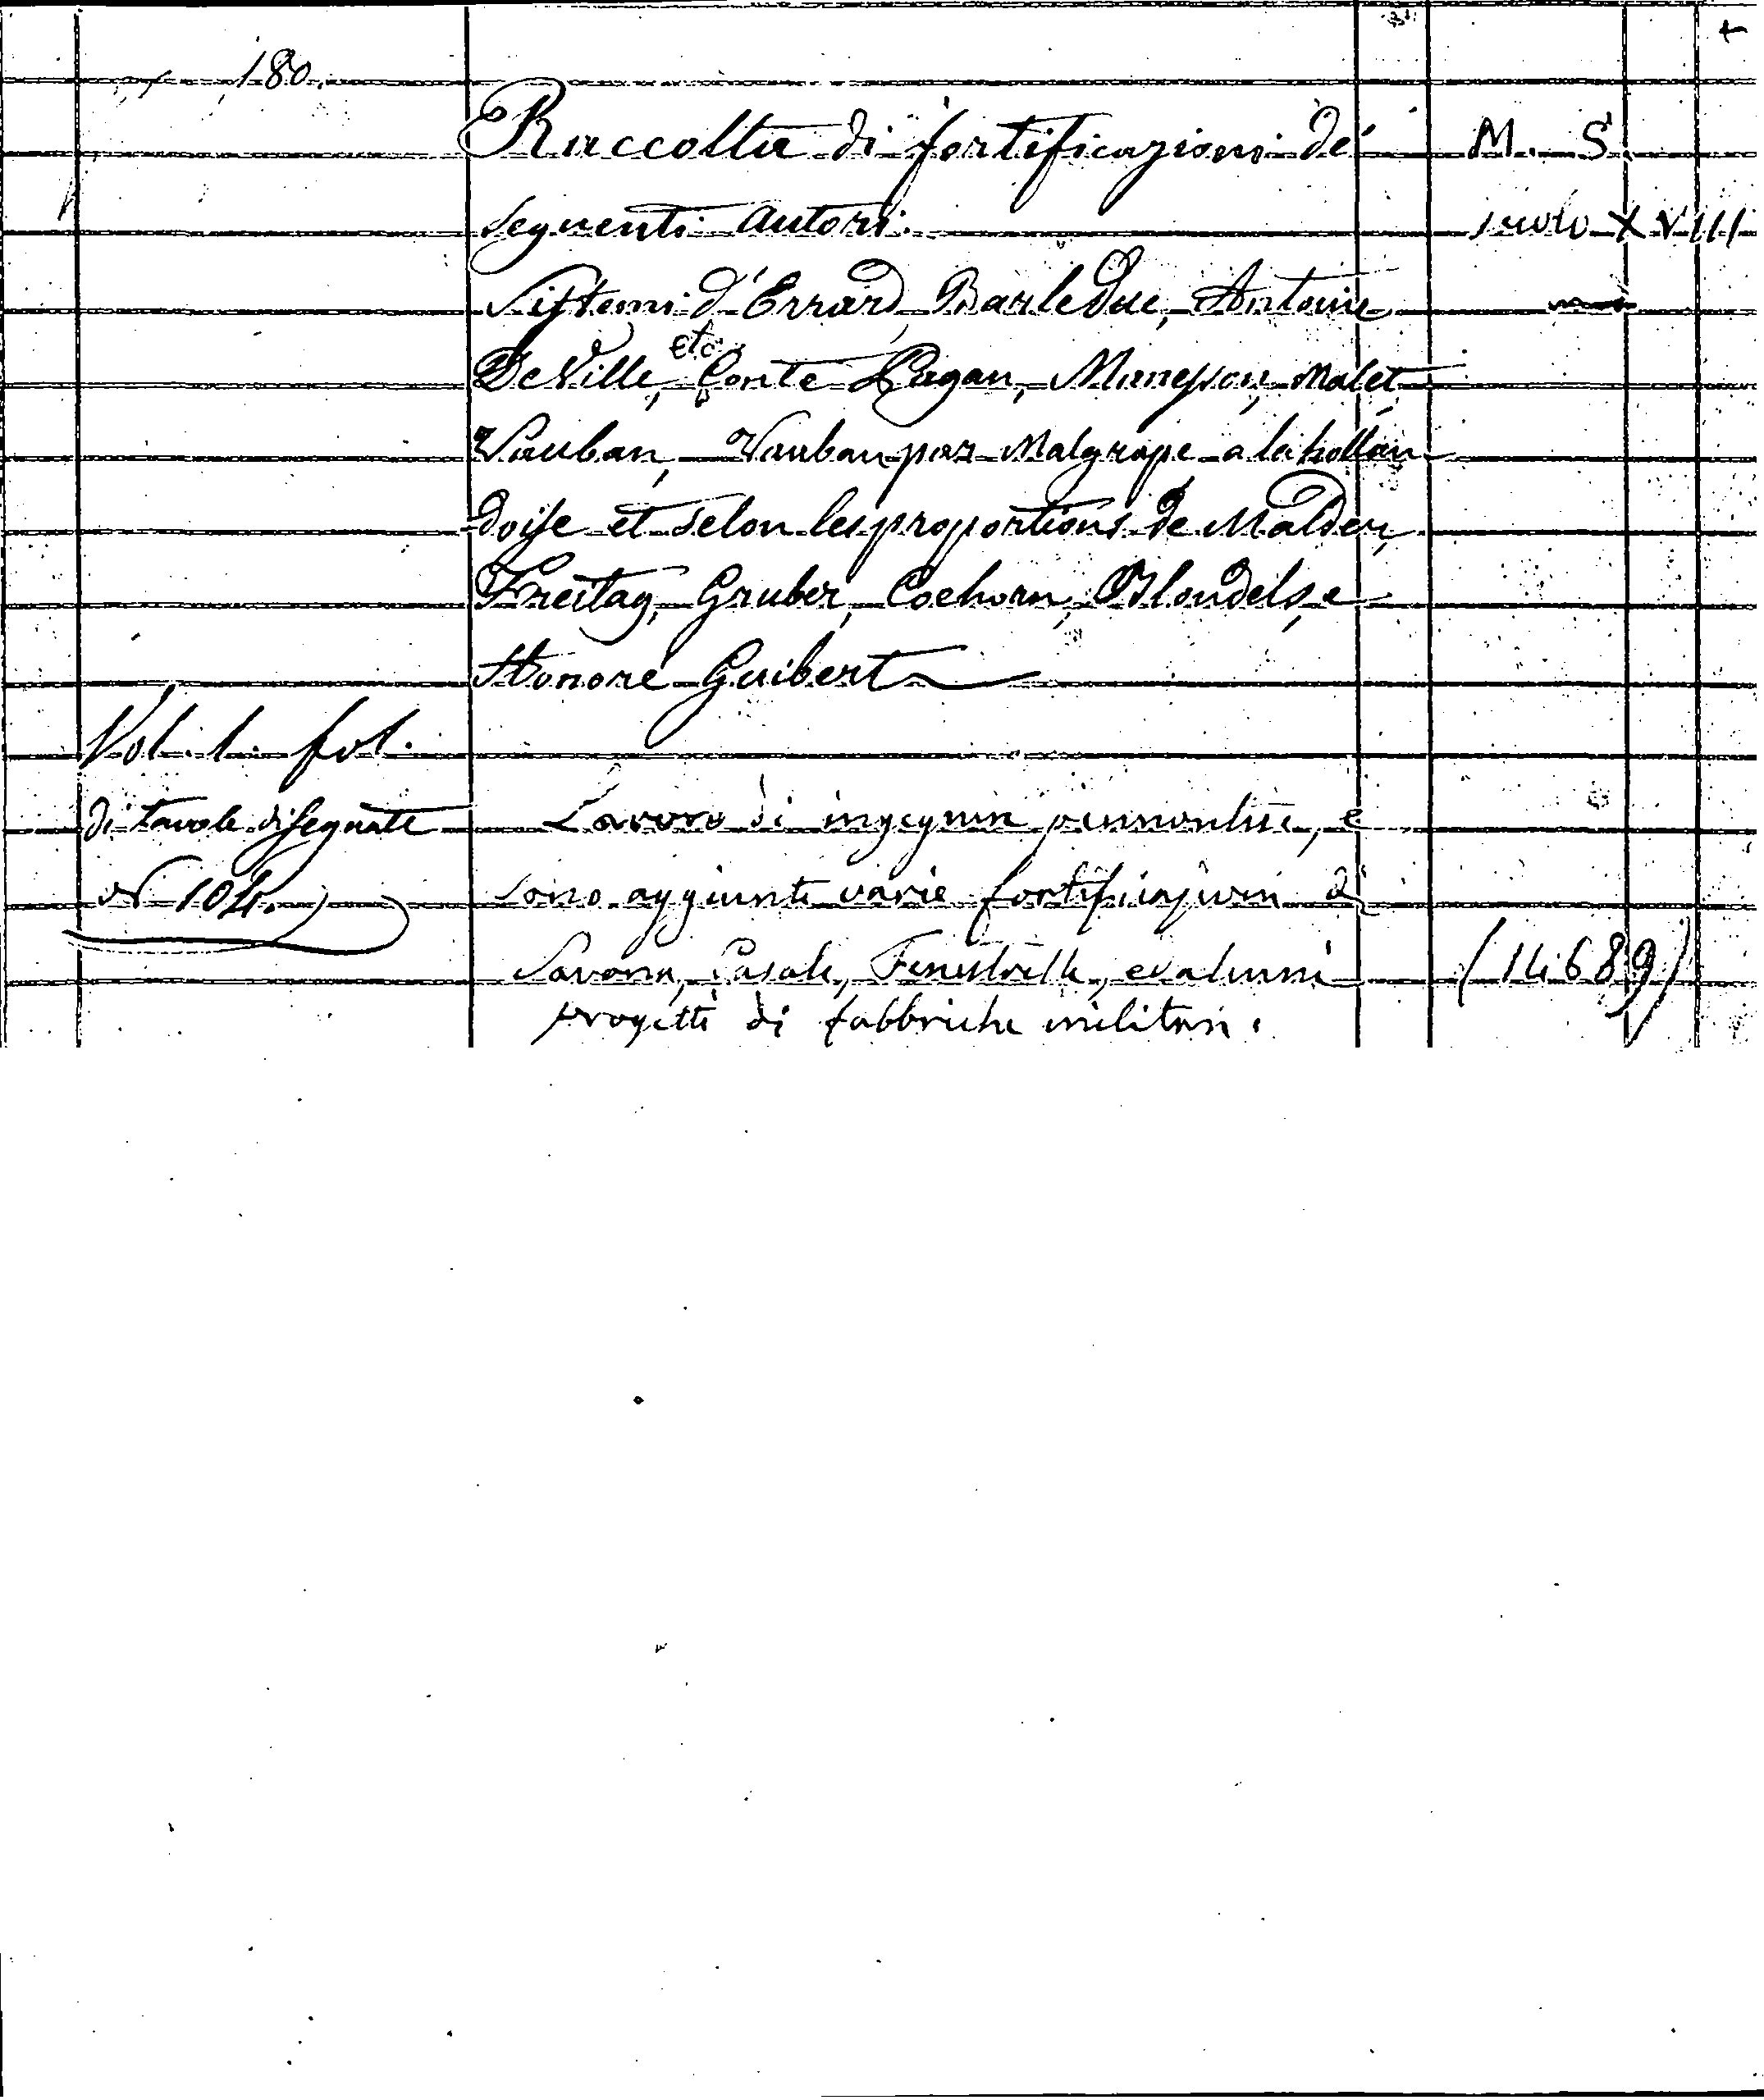 180.
Raccolta di fortificazioni de' M. S.
seguenti autori: secolo XVIII
Sistemi d'Errard Barleduc, Antoine
etc
De Ville, Conte Pagan, Manesson Malet
Vauban, Vauban par Malgrape a la hollan
doise et selon les proportions de Malder,
Freitag, Gruber, Coehorn, Blondels, e
Honoré Guibert
Vol. 1. fol.
di tavole disegnate Lavoro di ingegneri piemontesi, e
N 104. sono aggiunte varie fortificazioni di
Savona, Casale, Fenestrelle, ed alcuni (14689)
progetti di fabbriche militari.